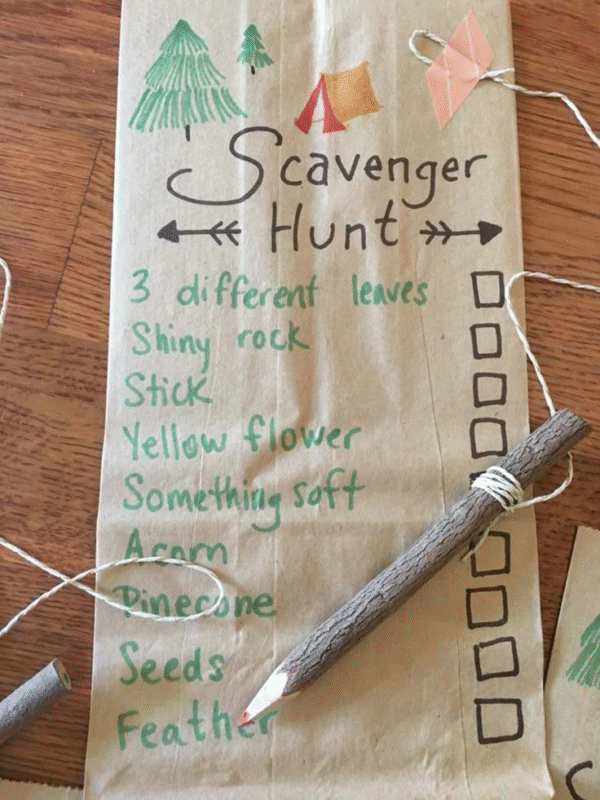 Scavenger
Hunt
3 different leaves
Shiny rock
Stick
Yellow flower
Something soft
Acorn
Pinecone
Seeds
Feather